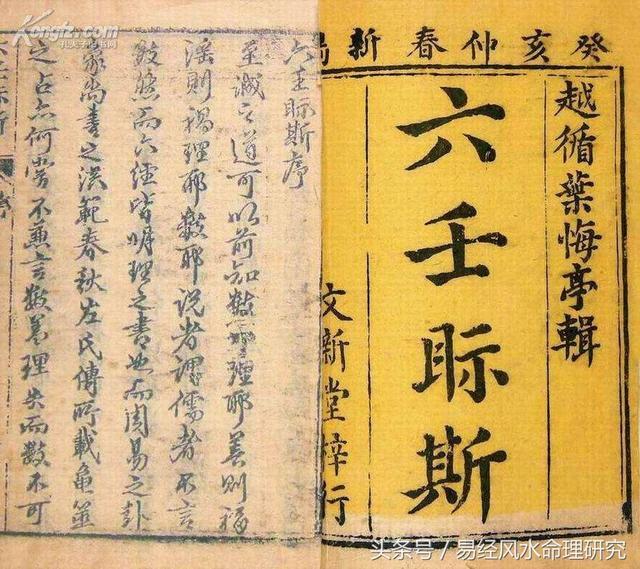 癸亥仲春新
越循葉悔亭輯
六壬眎斯
文新堂梓行
六壬眎斯序
至誠之道可以前知數耶理耶善則福
淫則禍理耶數耶說者謂儒者不言
數然而六經皆明理之書也而周易之卦
家尚書之洪範春秋左氏傳所載龜筮
之占亦何嘗不兼言數蓋理失而數不可
六壬眎斯
序
Kongfz.com
孔夫子旧书网
头条号/易经风水命理研究